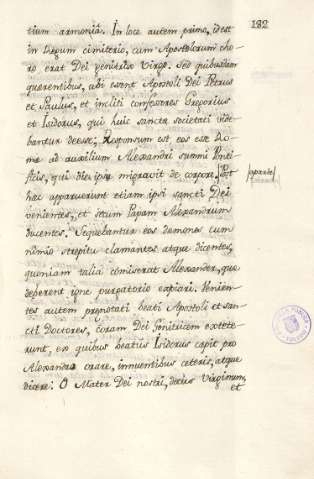 182
tium armonia. In loco autem primo, id est
in Lepum cimiterio, cum Apostolorum cho-
ro erat Dei genitrix Virgo. Sed quibusdam
querentibus, ubi essent Apostoli Dei Petrus
et Paulus, et incliti confessores Gregorius
et Isidorus, qui huic sancta societati vide-
bantur deesse; Responsum est eos esse Ro-
ma ad auxilium Alexandri summi Ponti-
ficis, qui die ipse migravit de corpore. Post
hec apparuerunt etiam ipsi sancti Dei
venientes, et secum Papam Alexandrum
ducentes. Sequebantur eos demones cum
nimio strepitu clamantes atque dicentes,
quoniam talia comiserat Alexander, que
deberent igne purgatorio expiari. Venien-
tes autem prenotati beati Apostoli et san-
cti Doctores, coram Dei Genitricem extete-
runt, ex quibus beatus Isidorus cepit pro
Alexandro orare, innuentibus ceteris, atque
dicere: O Mater Dei nostri, decus Virginum,
et